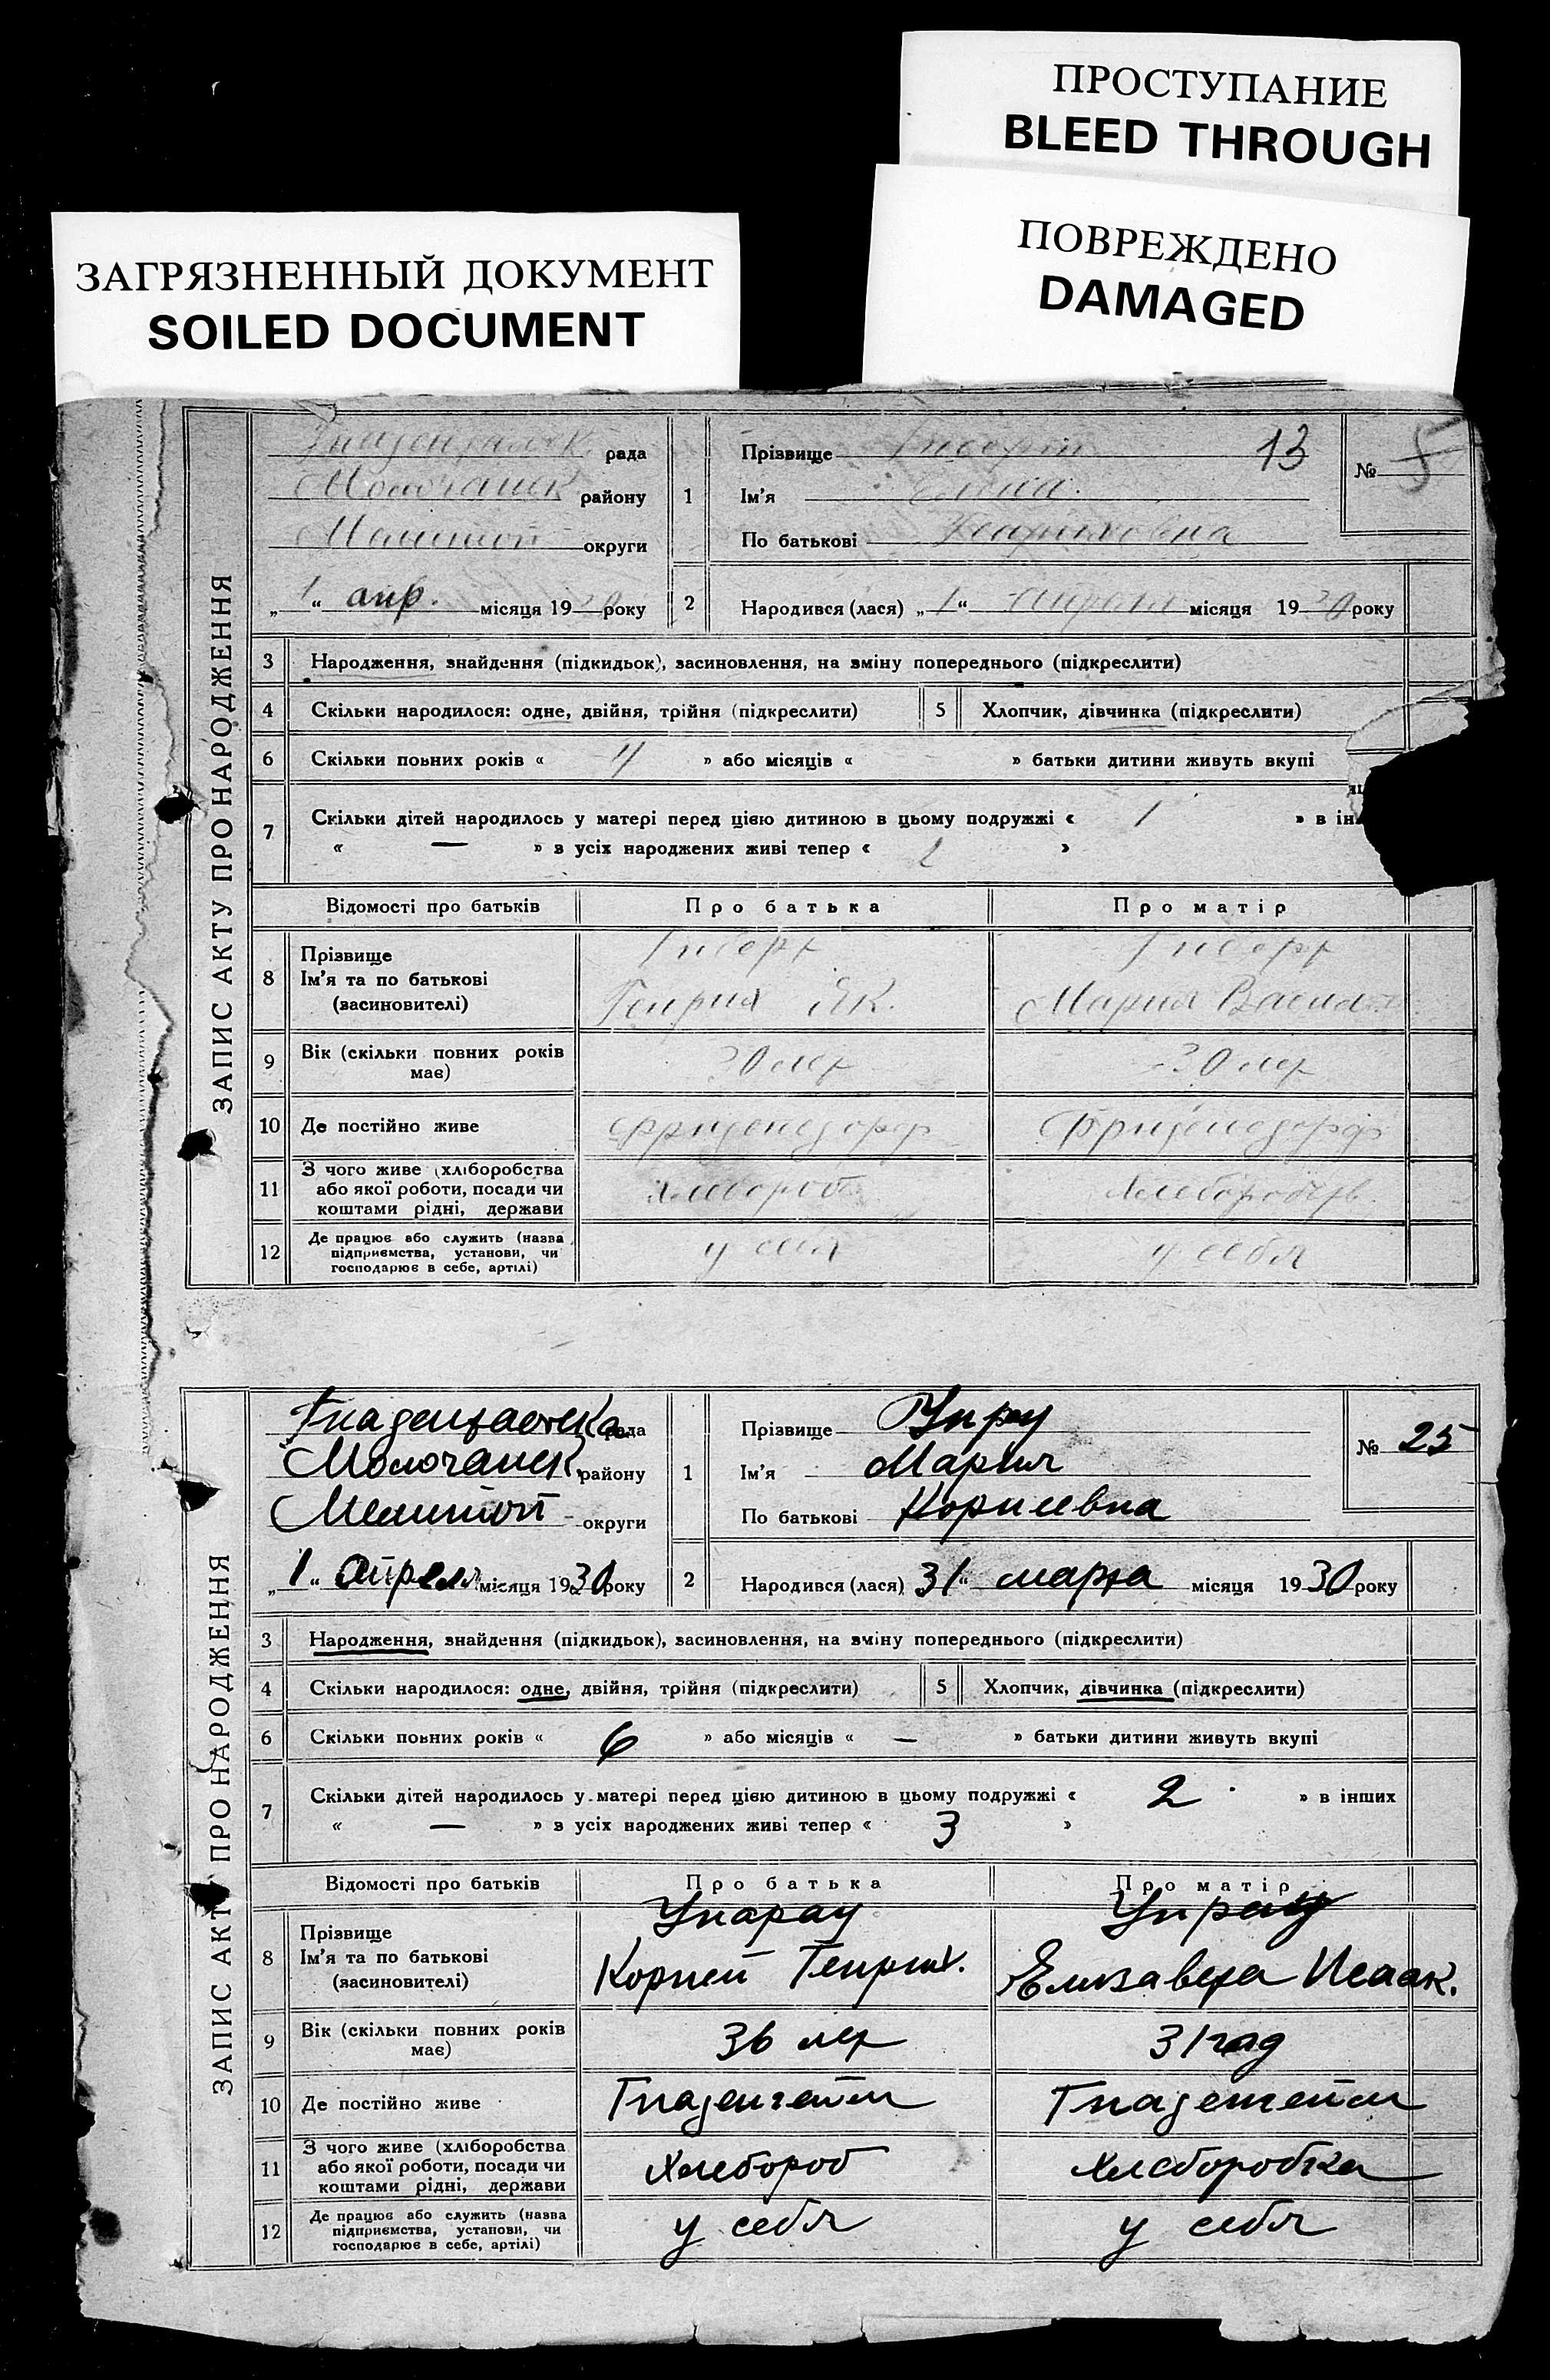 ПРОСТУПАНИЕ
BLEED THROUGH
ПОВРЕЖДЕНО
DAMAGED
ЗАГРЯЗНЕННЫЙ ДОКУМЕНТ
SOILED DOCUMENT
ЗАПИС АКТУ ПРО НАРОДЖЕННЯ
рада
Молочанск району
Мелитоп округи
„1“ апр. місяця 1930 року
1 Прізвище
13
№
Ім'я
По батькові Генриховна
2 Народився (лася) „1“ Апреля місяця 1930 року
3 Народження, знайдення (підкидьок), засиновлення, на зміну попереднього (підкреслити)
4 Скільки народилося: одне, двійня, трійня (підкреслити) 5 Хлопчик, дівчинка (підкреслити)
6 Скільки повних років « 4 » або місяців « » батьки дитини живуть вкупі
7 Скільки дітей народилось у матері перед цією дитиною в цьому подружжі « 1 » в ін
« — » з усіх народжених живі тепер « 2 »
Відомості про батьків Про батька Про матір
8 Прізвище
Ім'я та по батькові Генрих Як. Мария
(засновителі)
9 Вік (скільки повних років має) 30 лет 30 лет
10 Де постійно живе Фриденсдорф Фриденсдорф
11 З чого живе (хліборобства або якої роботи, посади чи коштами рідні, держави Хлебороб
12 Де працює або служить (назва підприємства, установи, чи господарює в себе, артілі) у себя у себя
ЗАПИС АКТУ ПРО НАРОДЖЕННЯ
рада
Молочанск району
Мелитоп округи
„1“ Апреля місяця 1930 року
1 Прізвище Унру
№ 25
Ім'я Мария
По батькові Корнеевна
2 Народився (лася) 31“ марта місяця 1930 року
3 Народження, знайдення (підкидьок), засиновлення, на зміну попереднього (підкреслити)
4 Скільки народилося: одне, двійня, трійня (підкреслити) 5 Хлопчик, дівчинка (підкреслити)
6 Скільки повних років « 6 » або місяців « — » батьки дитини живуть вкупі
7 Скільки дітей народилось у матері перед цією дитиною в цьому подружжі « 2 » в інших
« — » з усіх народжених живі тепер « 3 »
Відомості про батьків Про батька Про матір
8 Прізвище
Ім'я та по батькові Корней Генрих. Елизавета Исаак.
(засиновителі)
9 Вік (скільки повних років має) 36 лет 31 год
10 Де постійно живе Гнаденгейм Гнаденгейм
11 З чого живе (хліборобства або якої роботи, посади чи коштами рідні, держави Хлебороб Хлеборобка
12 Де працює або служить (назва підприємства, установи, чи господарює в себе, артілі) у себя у себя